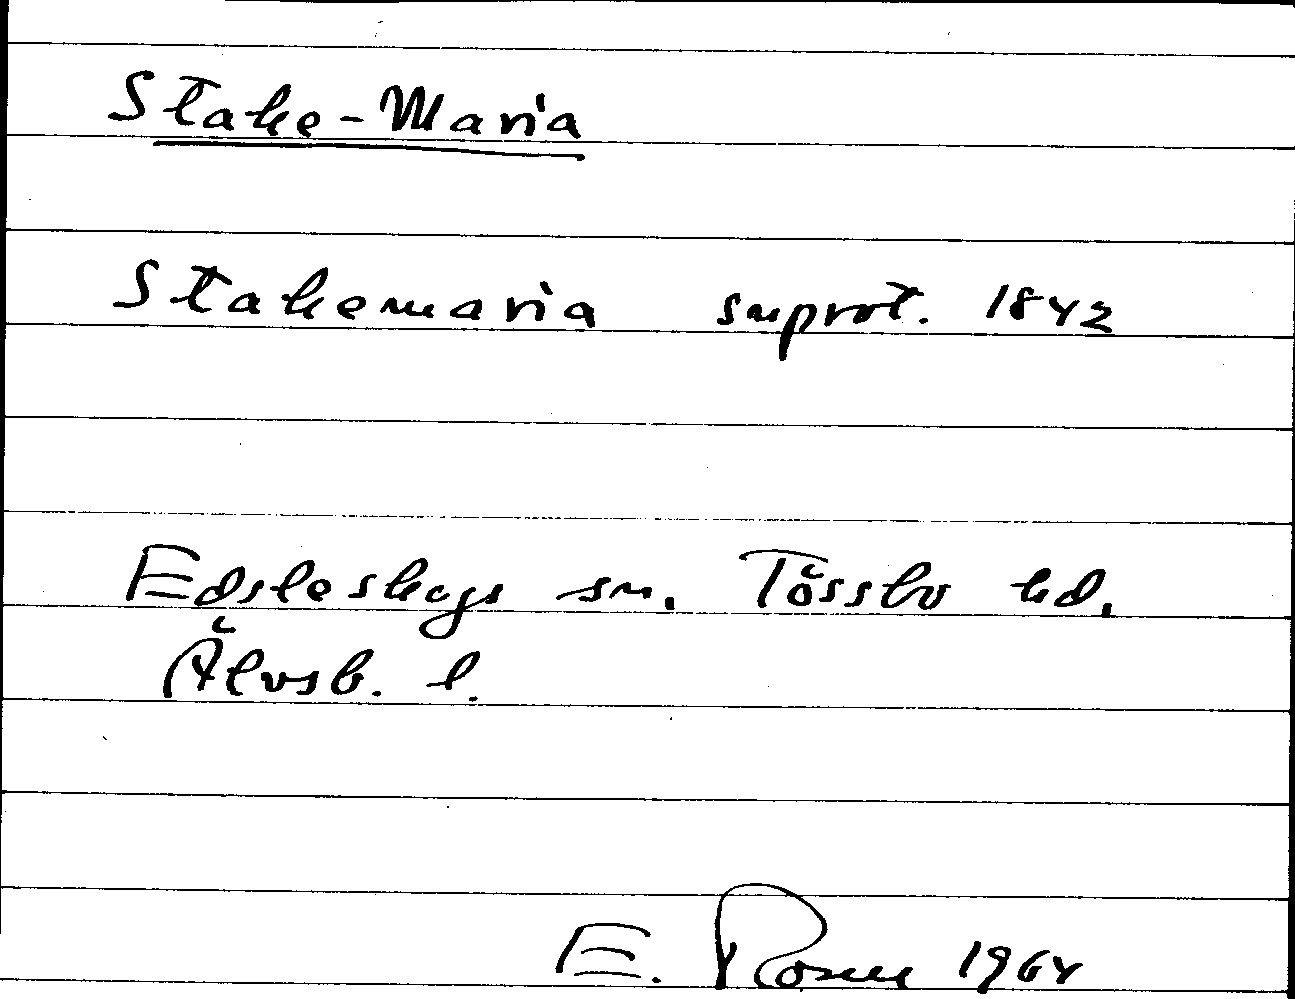 Stake-Maria
Stakemaria snprot. 1842
Edsleskogs sn. Tössbo hd.
Älvsb. l.
E. Rosen 1964